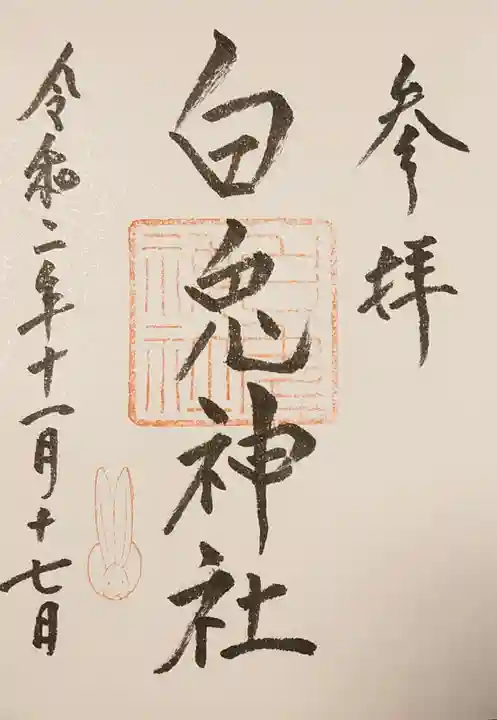 参拝
白兎神社
令和二年十一月十七月